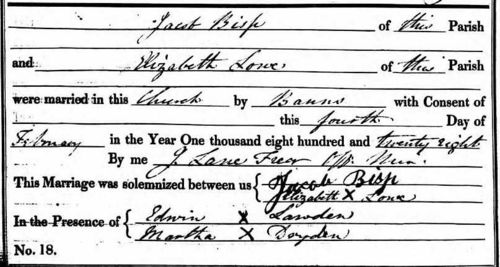 Jacob Bisp of this Parish
and Elizabeth Lowe of this Parish
were married in this Church by Banns with Consent of
this fourth Day of
February in the Year One thousand eight hundred and twenty eight
By me J. Lane Freer Off. Min.
This Marriage was solemnized between us { Jacob Bisp
Elizabeth X Lowe
In the Presence of { Edwin X Lawden
Martha X
No. 18.